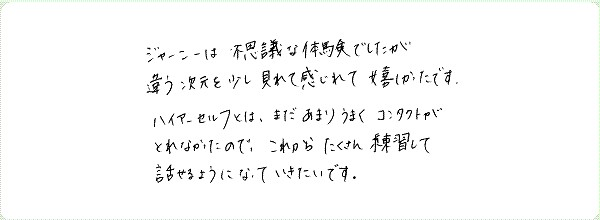 ジャーニーは 不思議な体験でしたが
違う次元を少し見れて感じれて 嬉しかったです.
ハイアーセルフとは、まだ あまり うまく コンタクトが
とれなかったので、これから たくさん 練習して
話せるようになって いきたいです。